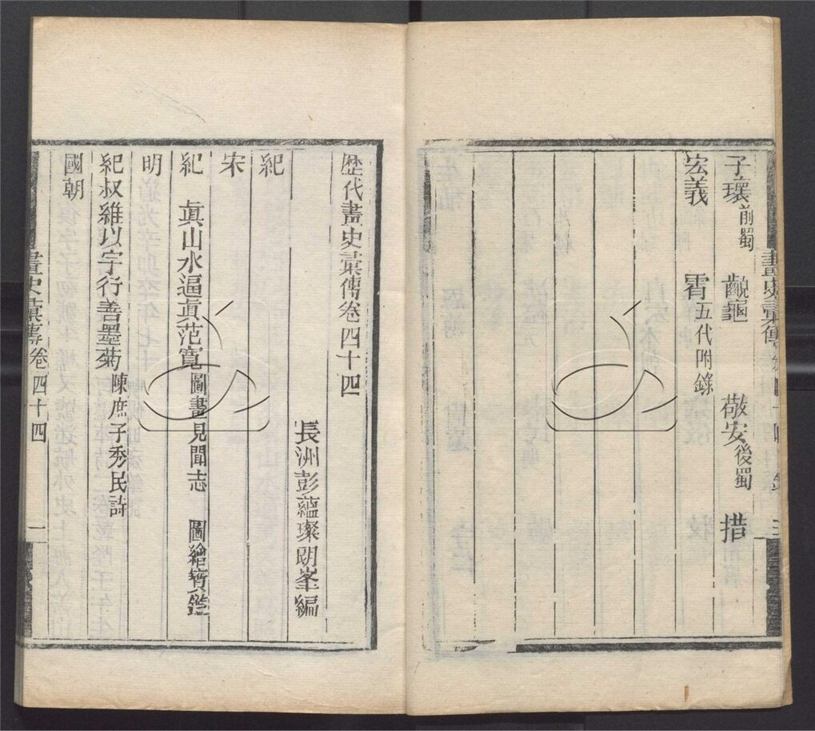 畫史彙傳卷四十四
子瓌前蜀　齯龜　敬安後蜀　措
宏義　霄五代附錄
歷代畫史彙傳卷四十四
長洲彭蘊璨朗峯編
紀
宋
紀　真山水逼真范寬圖畫見聞志　圖繪寶鑑
明
紀叔維以字行善墨菊陳庶子秀民詩
國朝
畫史彙傳卷四十四　一